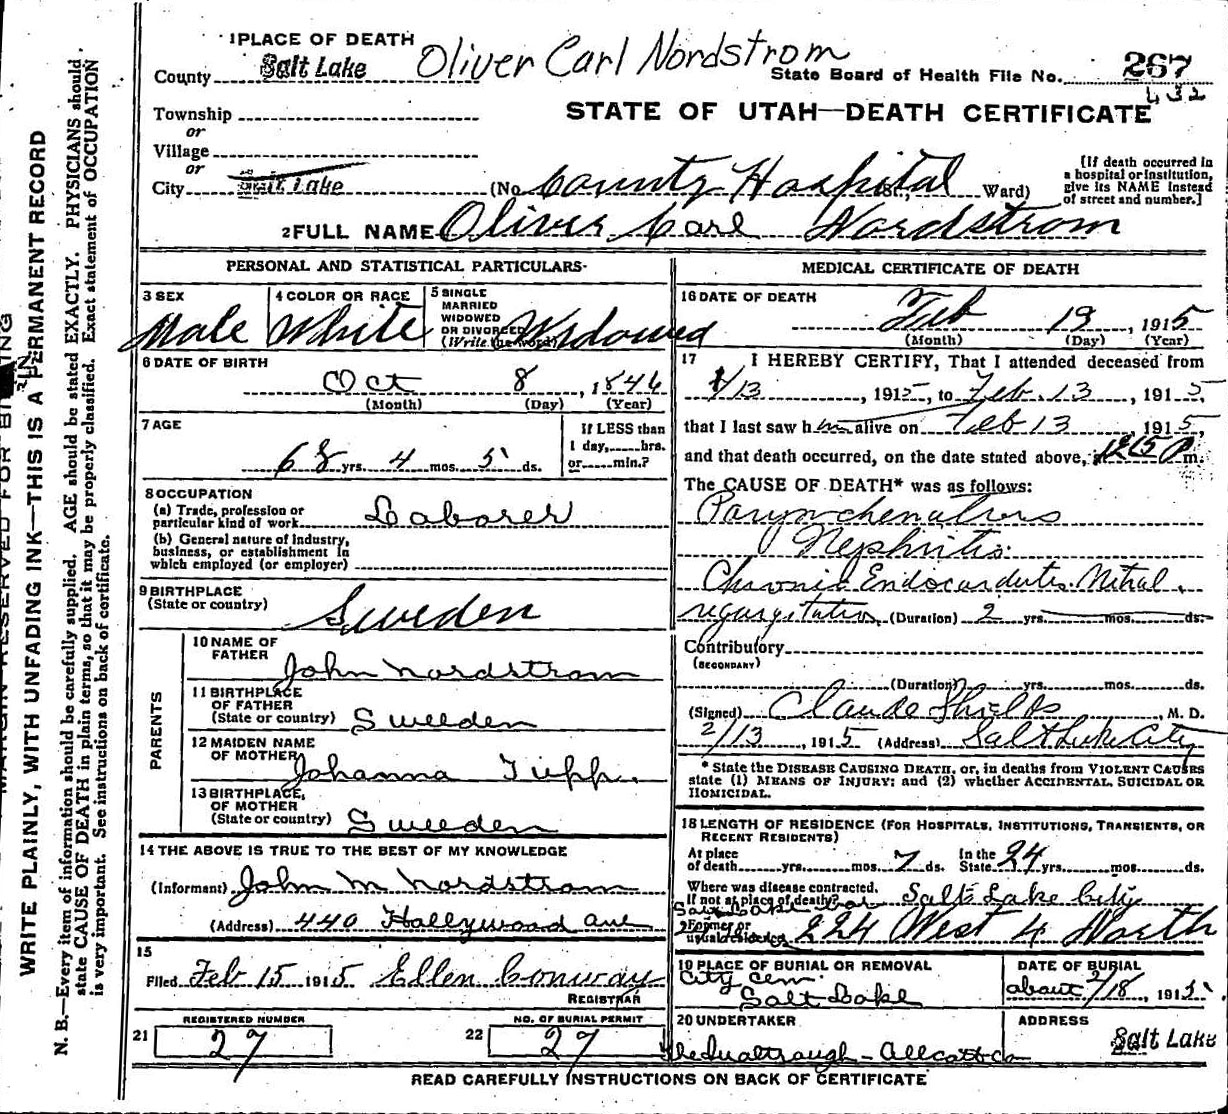 1 PLACE OF DEATH
Oliver Carl Nordstrom
County Salt Lake
State Board of Health File No. 267
432
Township
or
Village
or
City Salt Lake
STATE OF UTAH—DEATH CERTIFICATE
(No. County Hospital St., Ward)
[If death occurred in a hospital or institution, give its NAME instead of street and number.]
2 FULL NAME Oliver Carl Nordstrom
PERSONAL AND STATISTICAL PARTICULARS
3 SEX
Male
4 COLOR OR RACE
White
5 SINGLE
MARRIED
WIDOWED
OR DIVORCED
(Write the word)
Widowed
6 DATE OF BIRTH
Oct 8, 1846
(Month) (Day) (Year)
7 AGE
68 yrs. 4 mos. 5 ds.
If LESS than
1 day,......hrs.
or......min.?
8 OCCUPATION
(a) Trade, profession or
particular kind of work Laborer
(b) General nature of industry,
business, or establishment in
which employed (or employer)
9 BIRTHPLACE
(State or country)
Sweden
PARENTS
10 NAME OF
FATHER John Nordstrom
11 BIRTHPLACE
OF FATHER
(State or country) Sweeden
12 MAIDEN NAME
OF MOTHER Johanna
13 BIRTHPLACE
OF MOTHER
(State or country) Sweeden
14 THE ABOVE IS TRUE TO THE BEST OF MY KNOWLEDGE
(Informant) John M Nordstrom
(Address) 440 Hollywood Ave
15
Filed Feb 15 1915 Ellen Conway
REGISTRAR
21 REGISTERED NUMBER
27
22 NO. OF BURIAL PERMIT
27
MEDICAL CERTIFICATE OF DEATH
16 DATE OF DEATH
Feb 13, 1915
(Month) (Day) (Year)
17 I HEREBY CERTIFY, That I attended deceased from
1/13, 1915, to Feb. 13, 1915,
that I last saw him alive on Feb 13, 1915,
and that death occurred, on the date stated above, at 1215 P m.
The CAUSE OF DEATH* was as follows:
Parynchematous
Nephritis.
Chronic Endocarditis. Mitral
regurgitation (Duration) 2 yrs. mos. ds.
Contributory
(SECONDARY)
(Duration) yrs. mos. ds.
(Signed) Claude Shields, M. D.
2/13, 1915 (Address) Salt Lake City
* State the DISEASE CAUSING DEATH, or, in deaths from VIOLENT CAUSES
state (1) MEANS OF INJURY; and (2) whether ACCIDENTAL, SUICIDAL OR
HOMICIDAL.
18 LENGTH OF RESIDENCE (FOR HOSPITALS, INSTITUTIONS, TRANSIENTS, OR
RECENT RESIDENTS)
At place
of death yrs. mos. 7 ds. In the State 24 yrs. mos. ds.
Where was disease contracted,
If not at place of death? Salt Lake City
Salt Lake
Former or
usual residence 224 West 4 North
19 PLACE OF BURIAL OR REMOVAL
City Cem.
Salt Lake
DATE OF BURIAL
about 2/18, 1915
20 UNDERTAKER
ADDRESS
Salt Lake
READ CAREFULLY INSTRUCTIONS ON BACK OF CERTIFICATE
WRITE PLAINLY, WITH UNFADING INK—THIS IS A PERMANENT RECORD
N. B.—Every item of information should be carefully supplied. AGE should be stated EXACTLY. PHYSICIANS should
state CAUSE OF DEATH in plain terms, so that it may be properly classified. Exact statement of OCCUPATION
is very important. See instructions on back of certificate.